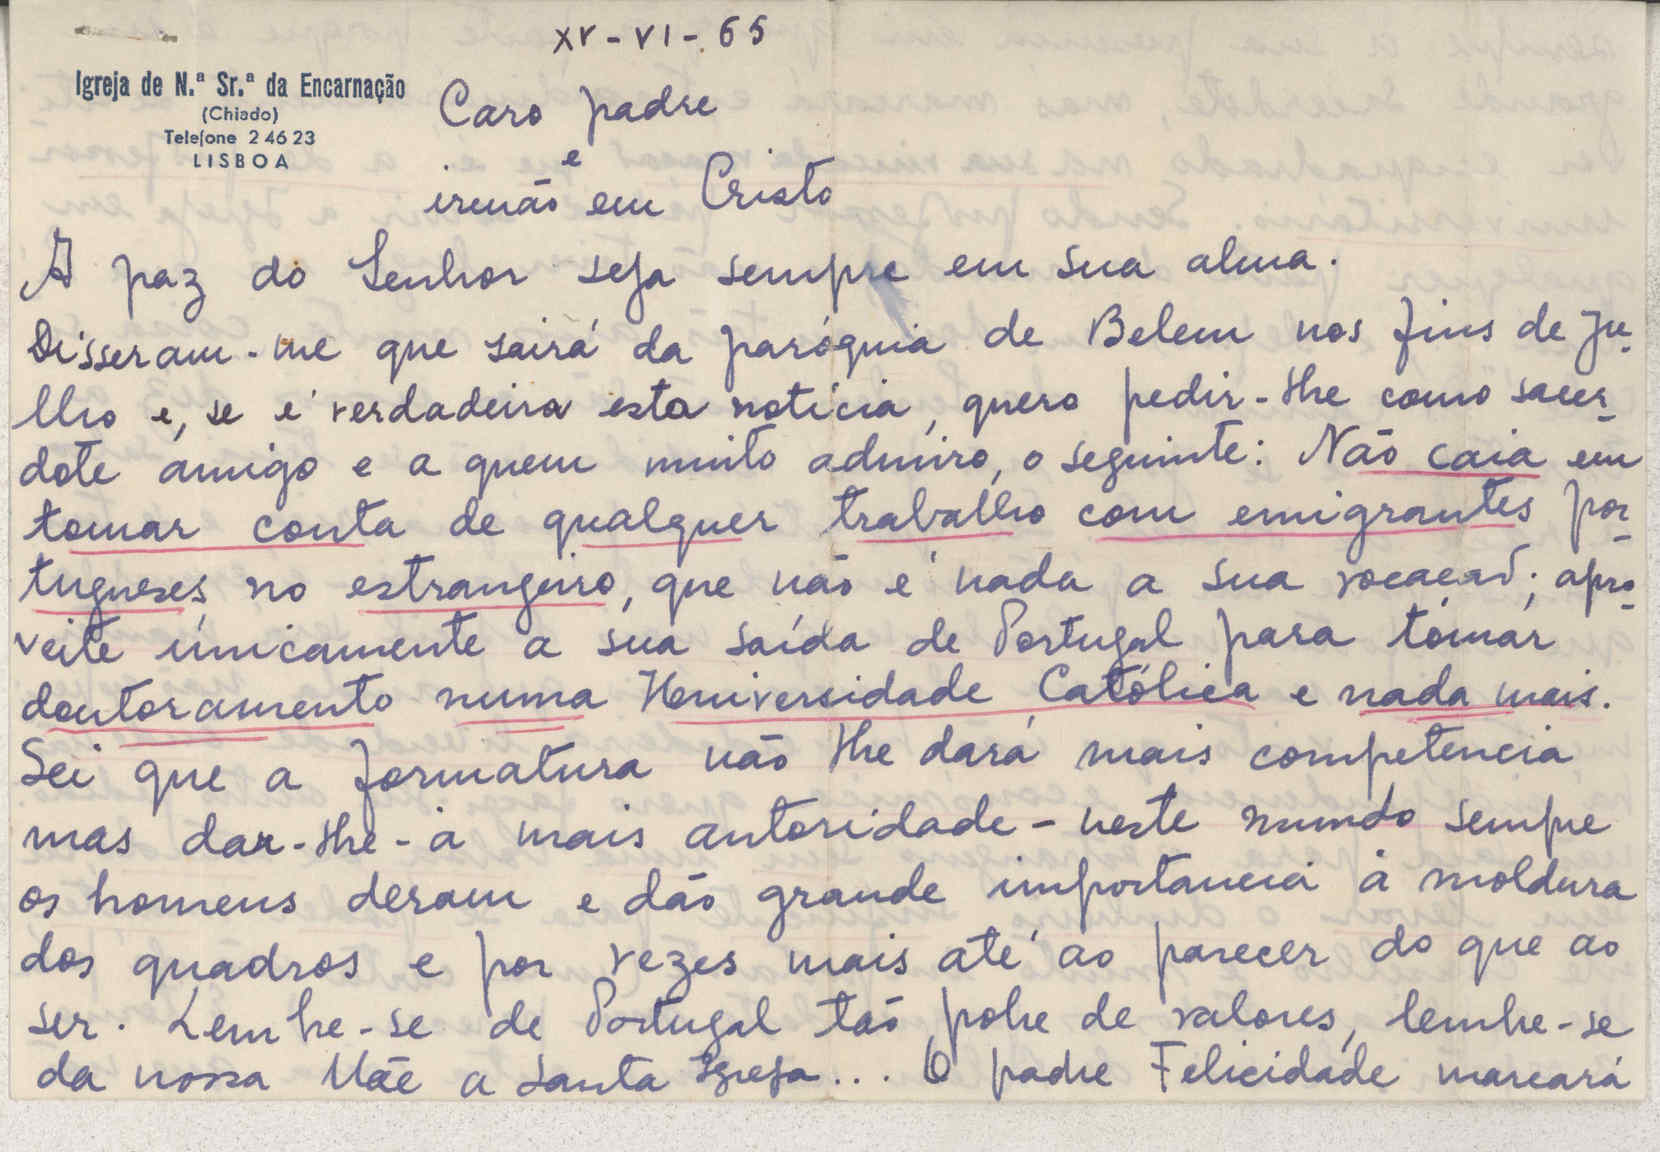 XV-VI-65
Igreja de N.ª Sr.ª da Encarnação
(Chiado)
Telefone 2 46 23
LISBOA
Caro padre
e
irmão em Cristo
A paz do Senhor seja sempre em sua alma.
Disseram-me que sairá da paróquia de Belem nos fins de Ju-
lho e, se é verdadeira esta notícia, quero pedir-lhe como sacer-
dote amigo e a quem muito admiro, o seguinte: Não caia em
tomar conta de qualquer trabalho com emigrantes por-
tugueses no estrangeiro, que não é nada a sua vocação; apro-
veite únicamente a sua saída de Portugal para tomar
doutoramento numa Universidade Católica e nada mais.
Sei que a formatura não lhe dará mais competencia
mas dar-lhe-á mais autoridade - neste mundo sempre
os homens deram e dão grande importancia à moldura
dos quadros e por vezes mais até ao parecer do que ao
ser. Lembre-se de Portugal tão pobre de valores, lembre-se
da nossa Mãe a Santa Igreja... O padre Felicidade marcará